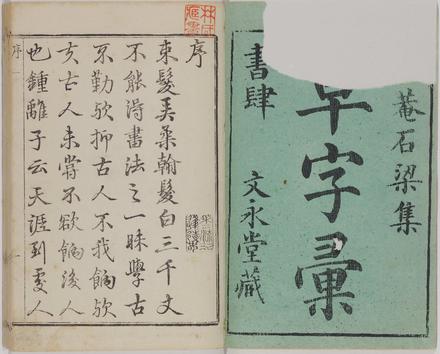 菴石梁集
草字彙
書肆
文永堂藏
序
束髮弄柔翰髮白三千丈
不能得書法之一昧學古
不勤歟抑古人不我餉歟
亥古人未嘗不欲餉後人
也鍾離子云天涯到處人
序
一